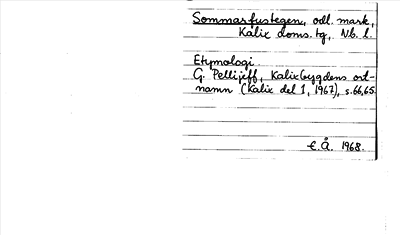 Sommarfustegen, odl. mark,
Kalix doms. tg, Nb. l.
Etymologi.
G. Pellijeff, Kalixbygdens ort-
namn (Kalix del 1, 1967), s. 66,65.
E.Å. 1968.